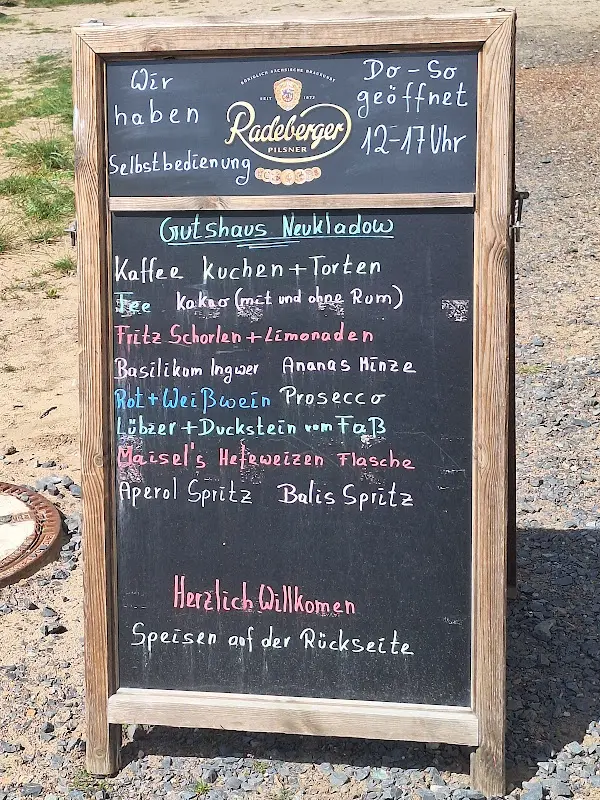 Wir
haben
Selbstbedienung
KÖNIGLICH SÄCHSISCHE BRAUKUNST
SEIT 1872
Radeberger
PILSNER
Do-So
geöffnet
12-17 Uhr
Gutshaus Neukladow
Kaffee Kuchen + Torten
Tee Kakao (mit und ohne Rum)
Fritz Schorlen + Limonaden
Basilikum Ingwer Ananas Minze
Rot + Weißwein Prosecco
Lübzer + Duckstein vom Faß
Maisel's Hefeweizen Flasche
Aperol Spritz Balis Spritz
Herzlich Willkomen
Speisen auf der Rückseite